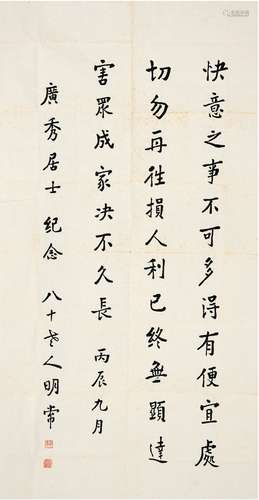 快意之事不可多得有便宜處
切勿再徃損人利己終無顯達
害眾成家决不久長 丙辰九月
廣秀居士 纪念 八十老人明常